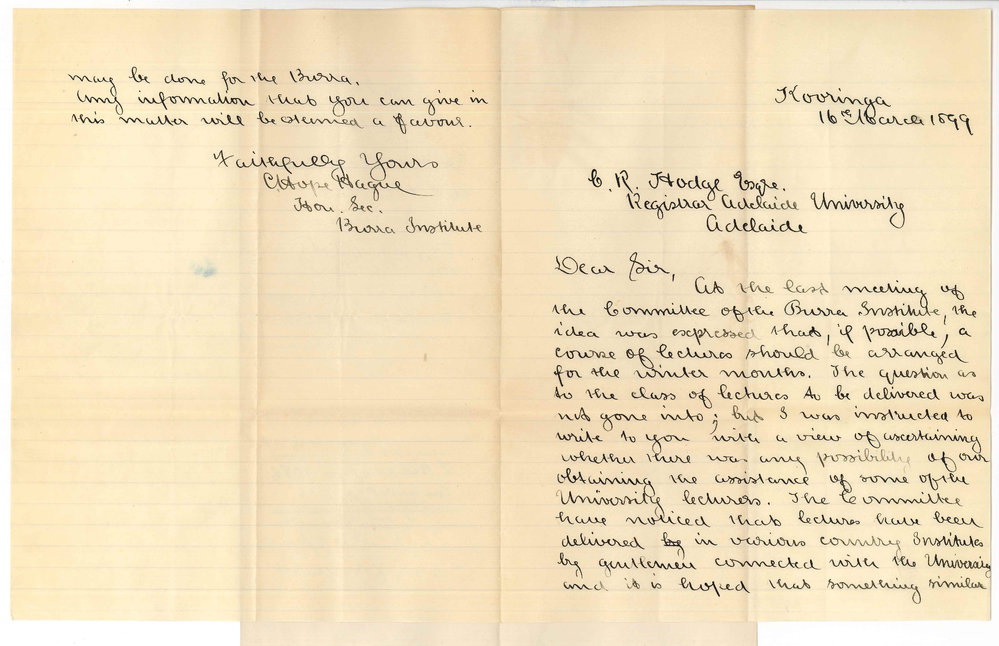 Kooringa
16th March 1899
C. R. Hodge Esqre.
Registrar Adelaide University
Adelaide
Dear Sir,
At the last meeting of
the Committee of the Burra Institute, the
idea was expressed that, if possible, a
course of lectures should be arranged
for the winter months. The question as
to the class of lectures to be delivered was
not gone into; but I was instructed to
write to you with a view of ascertaining
whether there was any possibility of our
obtaining the assistance of some of the
University lecturers. The Committee
have noticed that lectures have been
delivered by in various country Institutes
by gentlemen connected with the University
and it is hoped that something similar
may be done for the Burra.
Any information that you can give in
this matter will be esteemed a favour.
Faithfully Yours
C Hope Hague
Hon. Sec.
Burra Institute